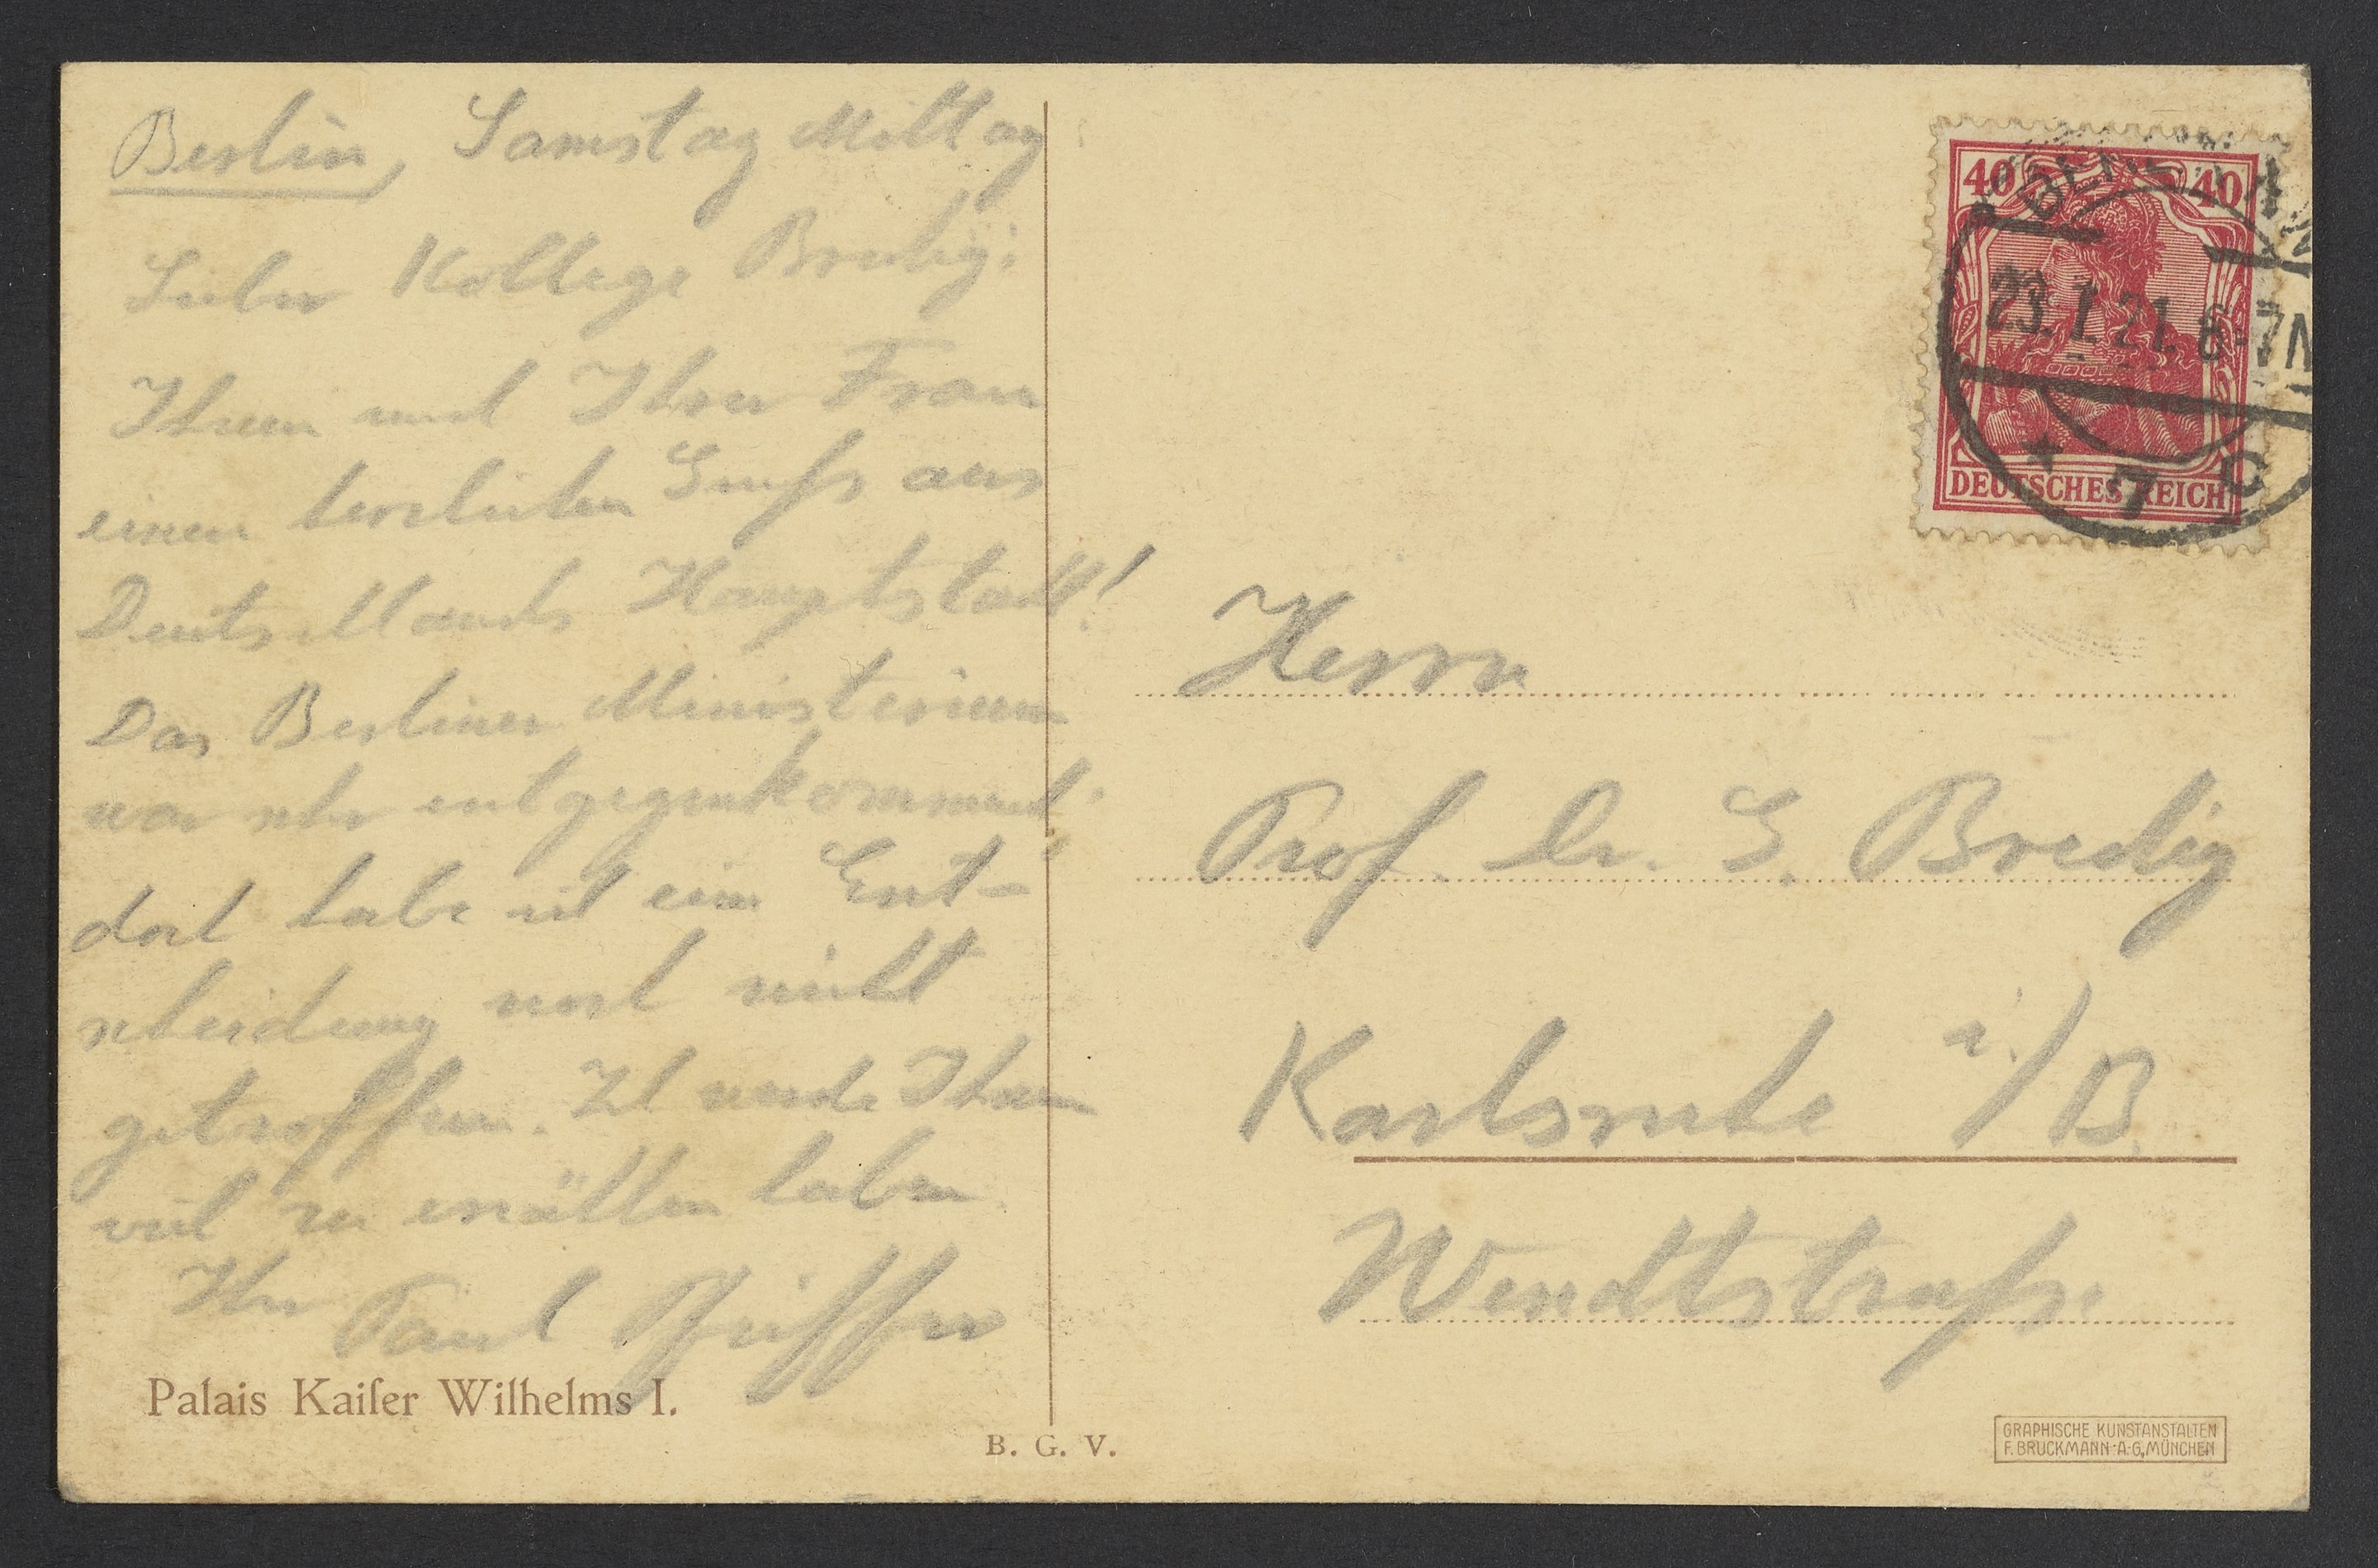 Berlin, Samstag Mittag
Lieber Kollege Bredig!
Ihnen und Ihrer Frau
einen herzlichen Gruß aus
Deutschlands Hauptstadt!
Das Berliner Ministerium
war sehr entgegenkommend;
doch habe ich eine Ent-
scheidung noch nicht
getroffen. Ich werde Ihnen
viel zu erzählen haben
Ihr Paul Pfeiffer
Palais Kaiſer Wilhelms I.
B. G. V.
40 40
DEUTSCHES REICH
BERLIN
23.1.21. 6-7N
* 7 C
Herrn
Prof. Dr. G. Bredig
Karlsruhe i./B.
Wendtstraße
GRAPHISCHE KUNSTANSTALTEN
F. BRUCKMANN A-G, MÜNCHEN